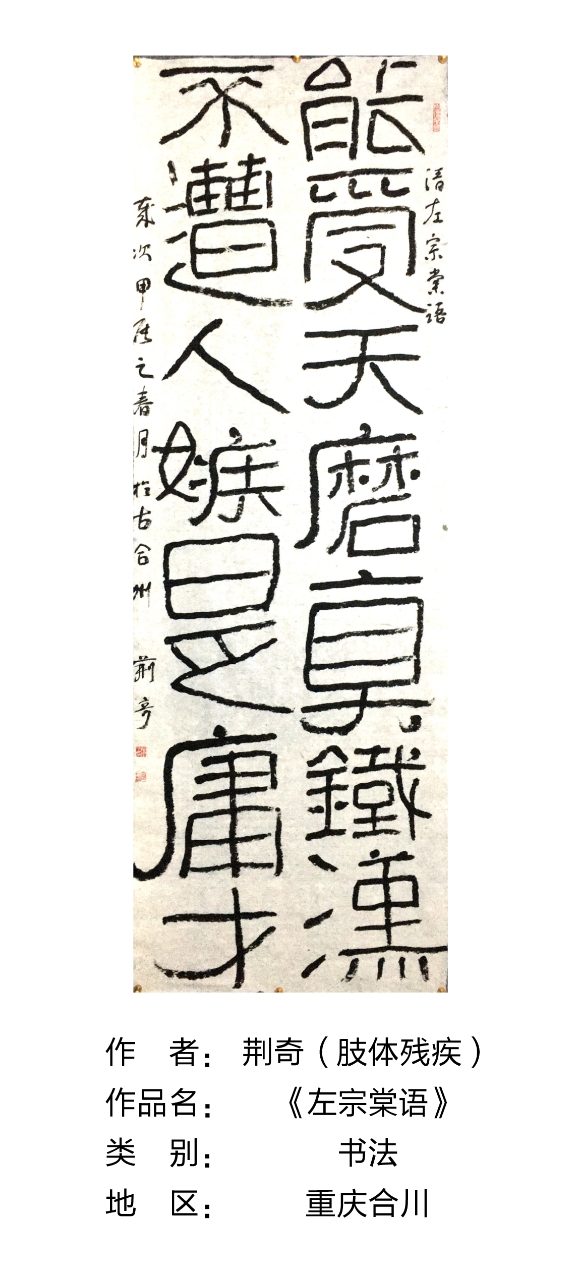 能受天磨真鐵漢
不遭人嫉是庸才
清左宗棠语
歲次甲辰之春月於古合州 荊奇
作 者： 荆奇（肢体残疾）
作品名： 《左宗棠语》
类 别： 书法
地 区： 重庆合川